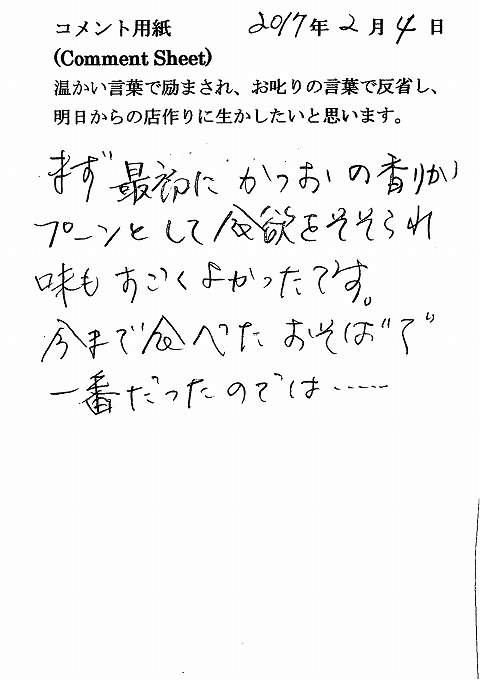 コメント用紙 2017年2月4日
(Comment Sheet)
温かい言葉で励まされ、お叱りの言葉で反省し、
明日からの店作りに生かしたいと思います。
まず最初にかつおの香りが
プーンとして食欲をそそられ
味もすごくよかったです。
今まで食べたおそばで
一番だったのでは……